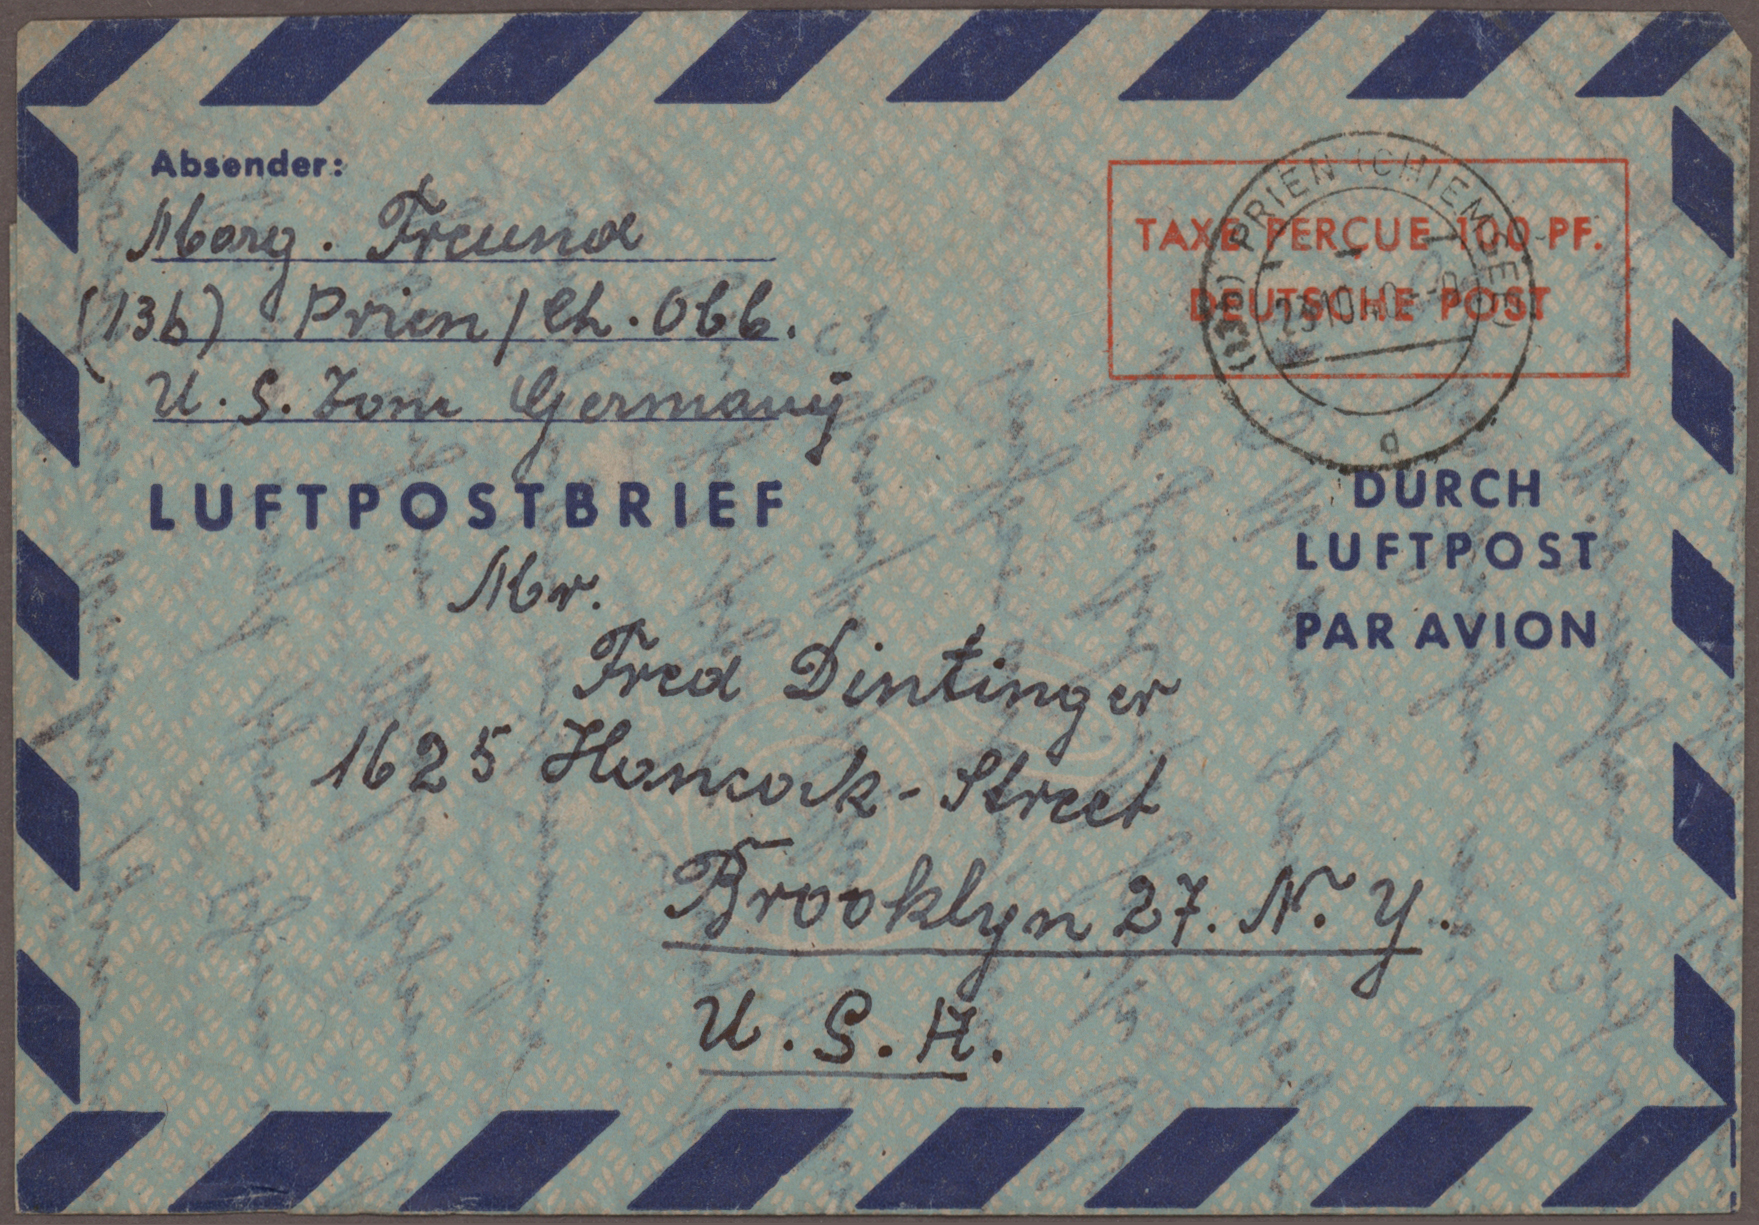 Absender:
Marg. Freund
(13b) Prien/Ch. Obb.
U.S. Zone Germany
TAXE PERÇUE 100 PF.
DEUTSCHE POST
(13b) PRIEN (CHIEMSEE)
LUFTPOSTBRIEF
DURCH
LUFTPOST
PAR AVION
Mr.
Fred Dintinger
1625 Hancock-Street
Brooklyn 27. N.Y.
U.S.A.